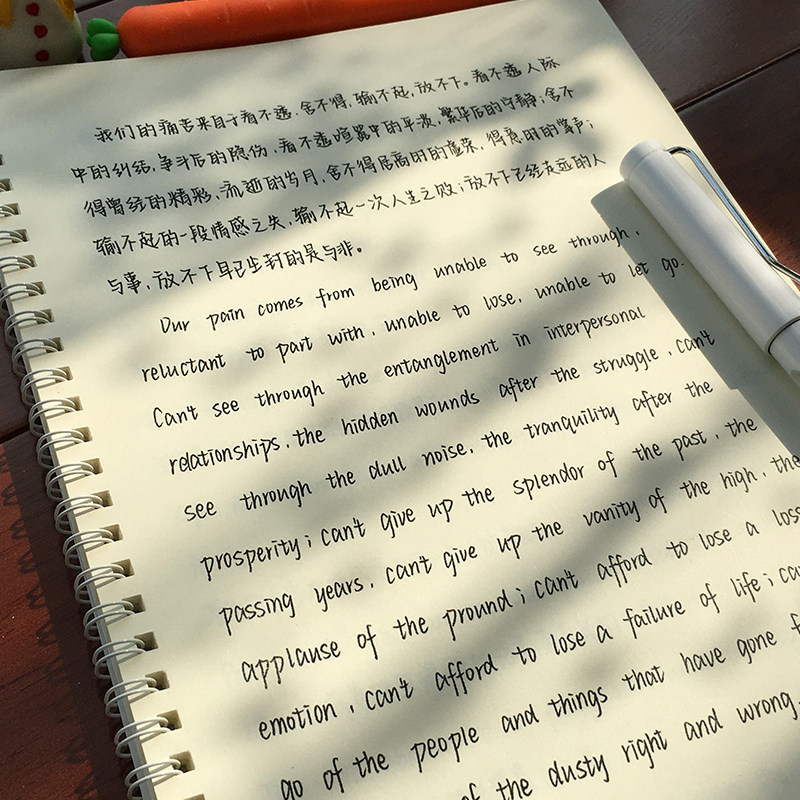 我们的痛苦来自于看不透、舍不得,输不起,放不下。看不透人际
中的纠结,争斗后的隐伤,看不透喧嚣中的平淡,繁华后的宁静;舍不
得曾经的精彩,流逝的岁月,舍不得居高时的虚荣,得意时的掌声;
输不起的一段情感之失,输不起一次人生之败;放不下已经走远的人
与事,放不下早已尘封的是与非。
Our pain comes from being unable to see through,
reluctant to part with, unable to lose, unable to let go.
Can't see through the entanglement in interpersonal
relationships, the hidden wounds after the struggle, can't
see through the dull noise, the tranquility after the
prosperity; can't give up the splendor of the past, the
passing years, can't give up the vanity of the high, the
applause of the pround; can't afford to lose a loss
emotion, can't afford to lose a failure of life; can
go of the people and things that have gone f
of the dusty right and wrong.